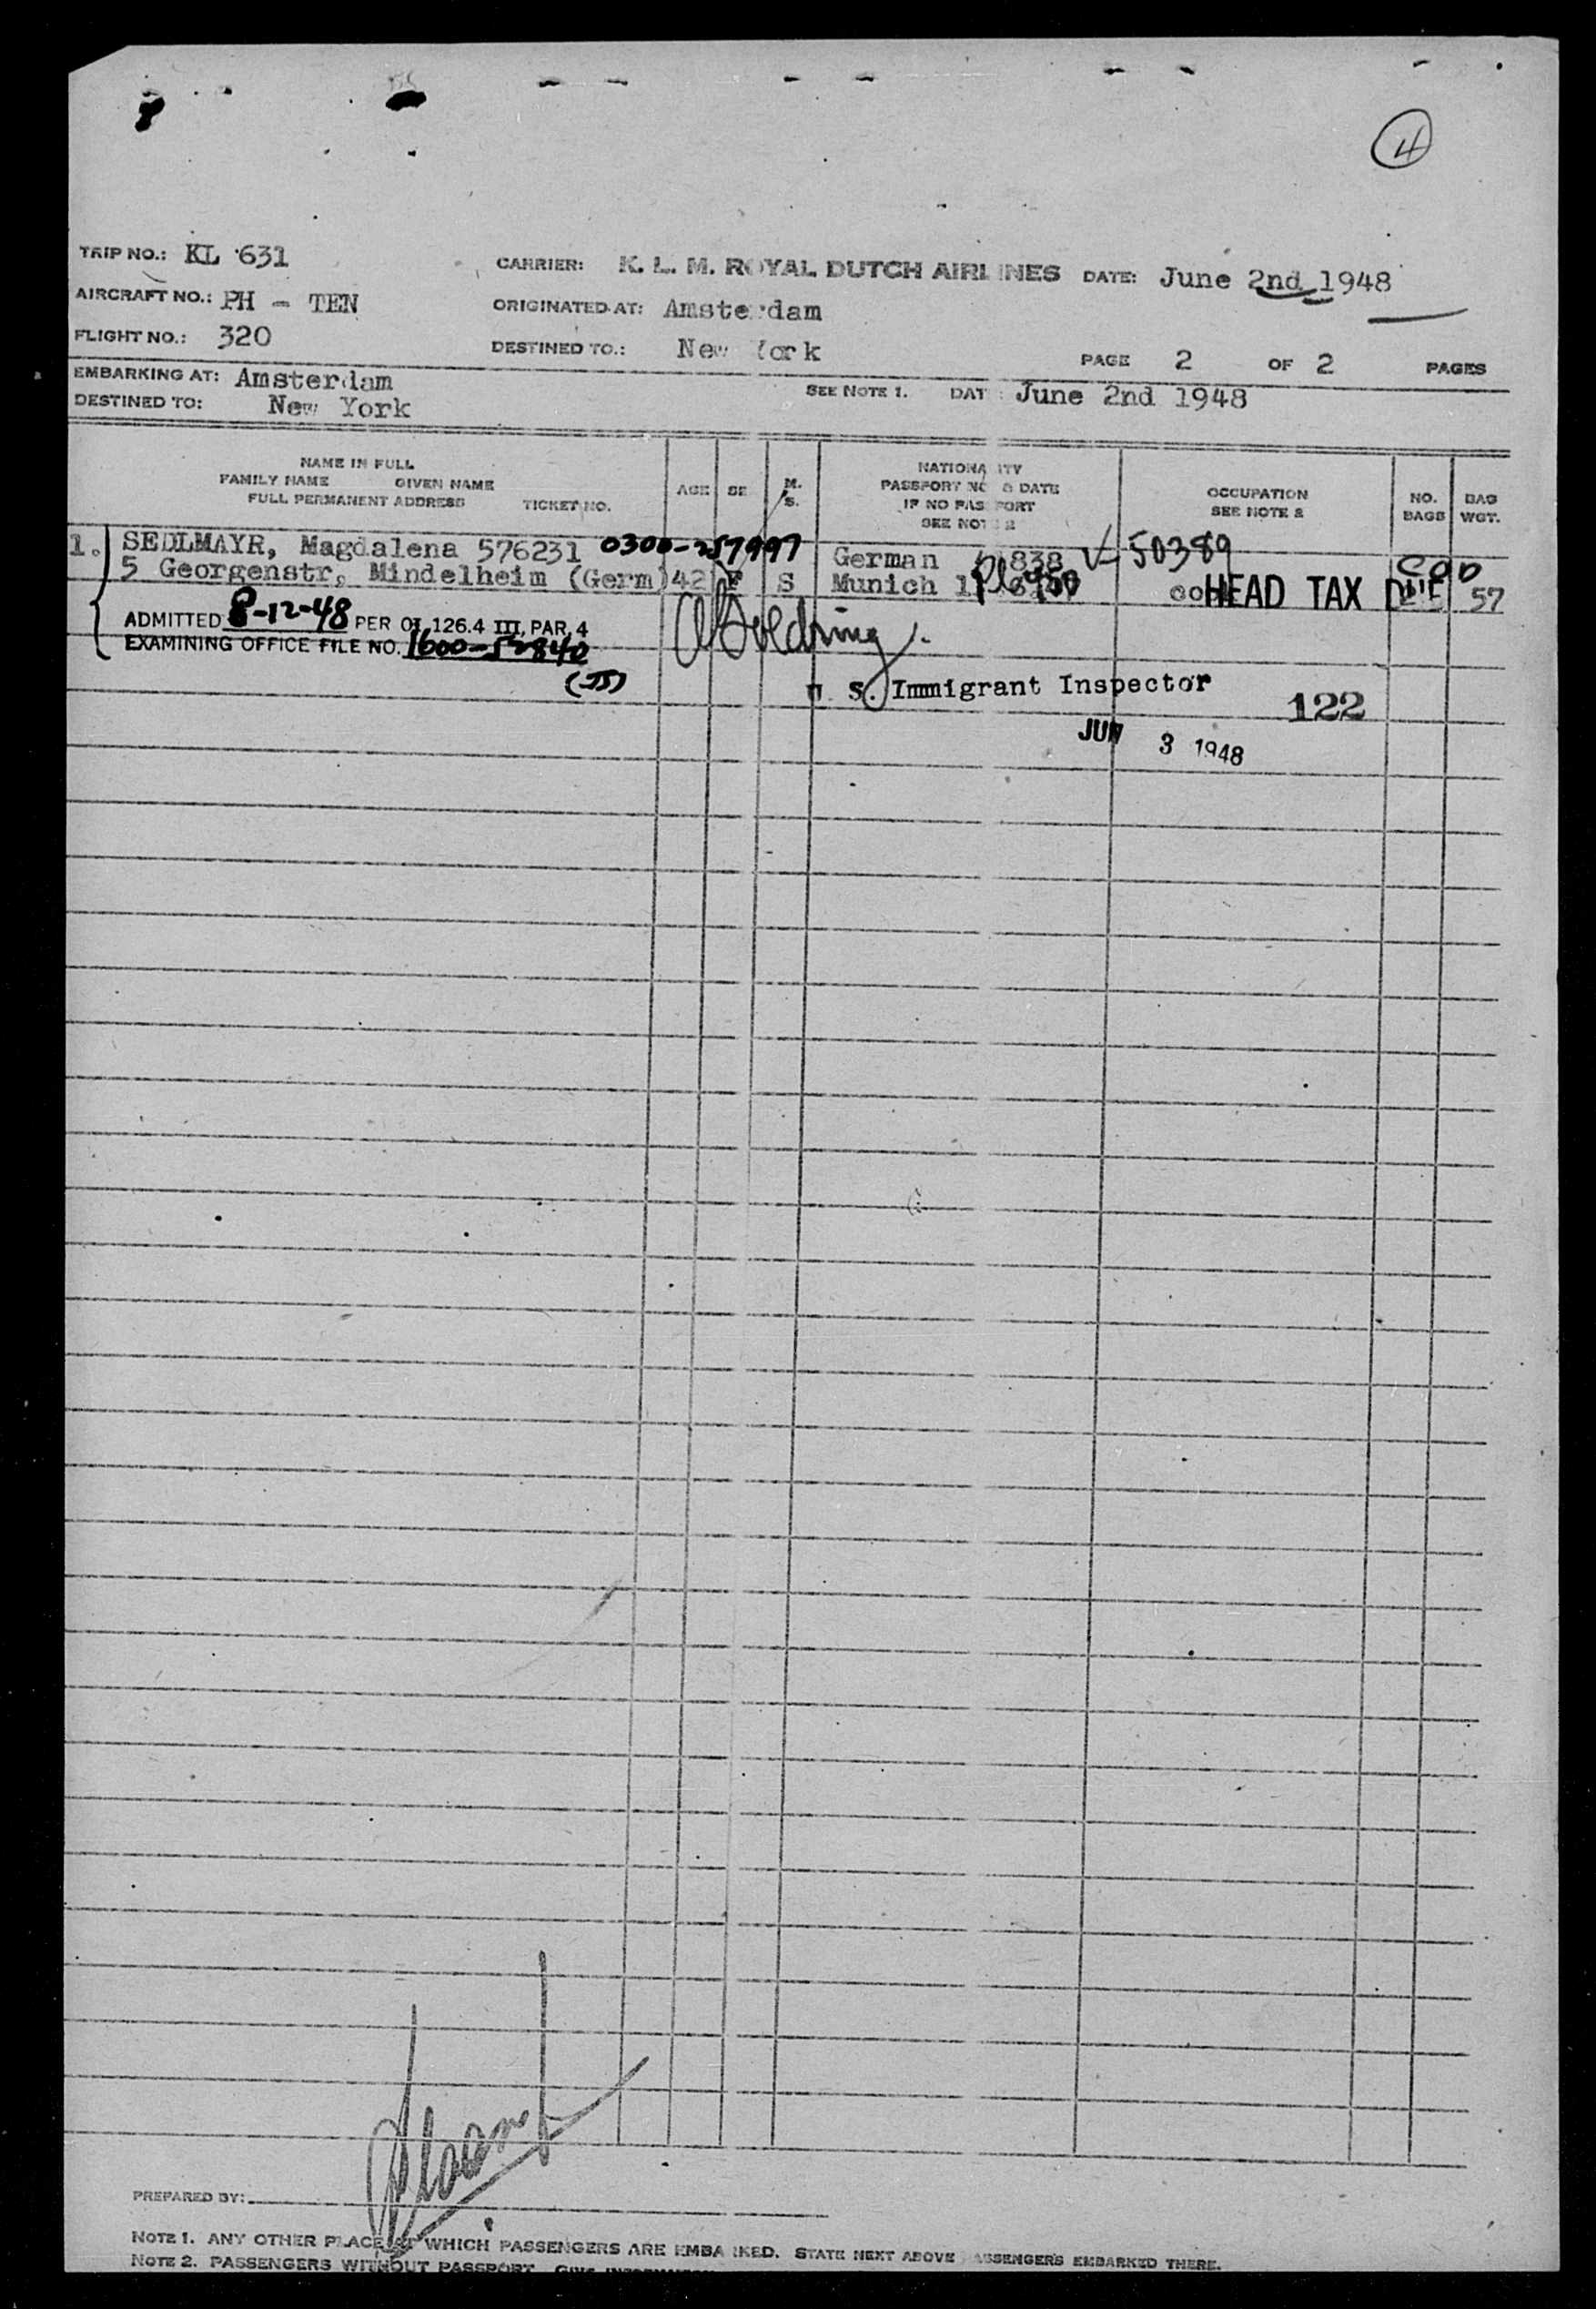 4
TRIP NO.: KL 631
CARRIER: K. L. M. ROYAL DUTCH AIRLINES DATE: June 2nd 1948
AIRCRAFT NO.: PH - TEN
ORIGINATED AT: Amsterdam
FLIGHT NO.: 320
DESTINED TO.: New York
PAGE 2 OF 2 PAGES
EMBARKING AT: Amsterdam
SEE NOTE 1. DAT : June 2nd 1948
DESTINED TO: New York
NAME IN FULL
FAMILY NAME GIVEN NAME
FULL PERMANENT ADDRESS TICKET NO.
AGE
SE
M.
S.
NATIONA ITY
PASSPORT NO & DATE
IF NO PAS PORT
SEE NOT 2
OCCUPATION
SEE NOTE 2
NO.
BAGS
BAG
WGT.
1. SEDLMAYR, Magdalena 576231 0300-257997 German 838 50389
5 Georgenstr, Mindelheim (Germ) 42 F S Munich HEAD TAX DUE 57
ADMITTED 8-12-48 PER OI 126.4 III, PAR. 4
EXAMINING OFFICE FILE NO. 1600-52840
S. Immigrant Inspector
122
JUN 3 1948
PREPARED BY:
NOTE 1. ANY OTHER PLACE AT WHICH PASSENGERS ARE EMBA KED. STATE NEXT ABOVE ASSENGERS EMBARKED THERE.
NOTE 2. PASSENGERS WITHOUT PASSPORT